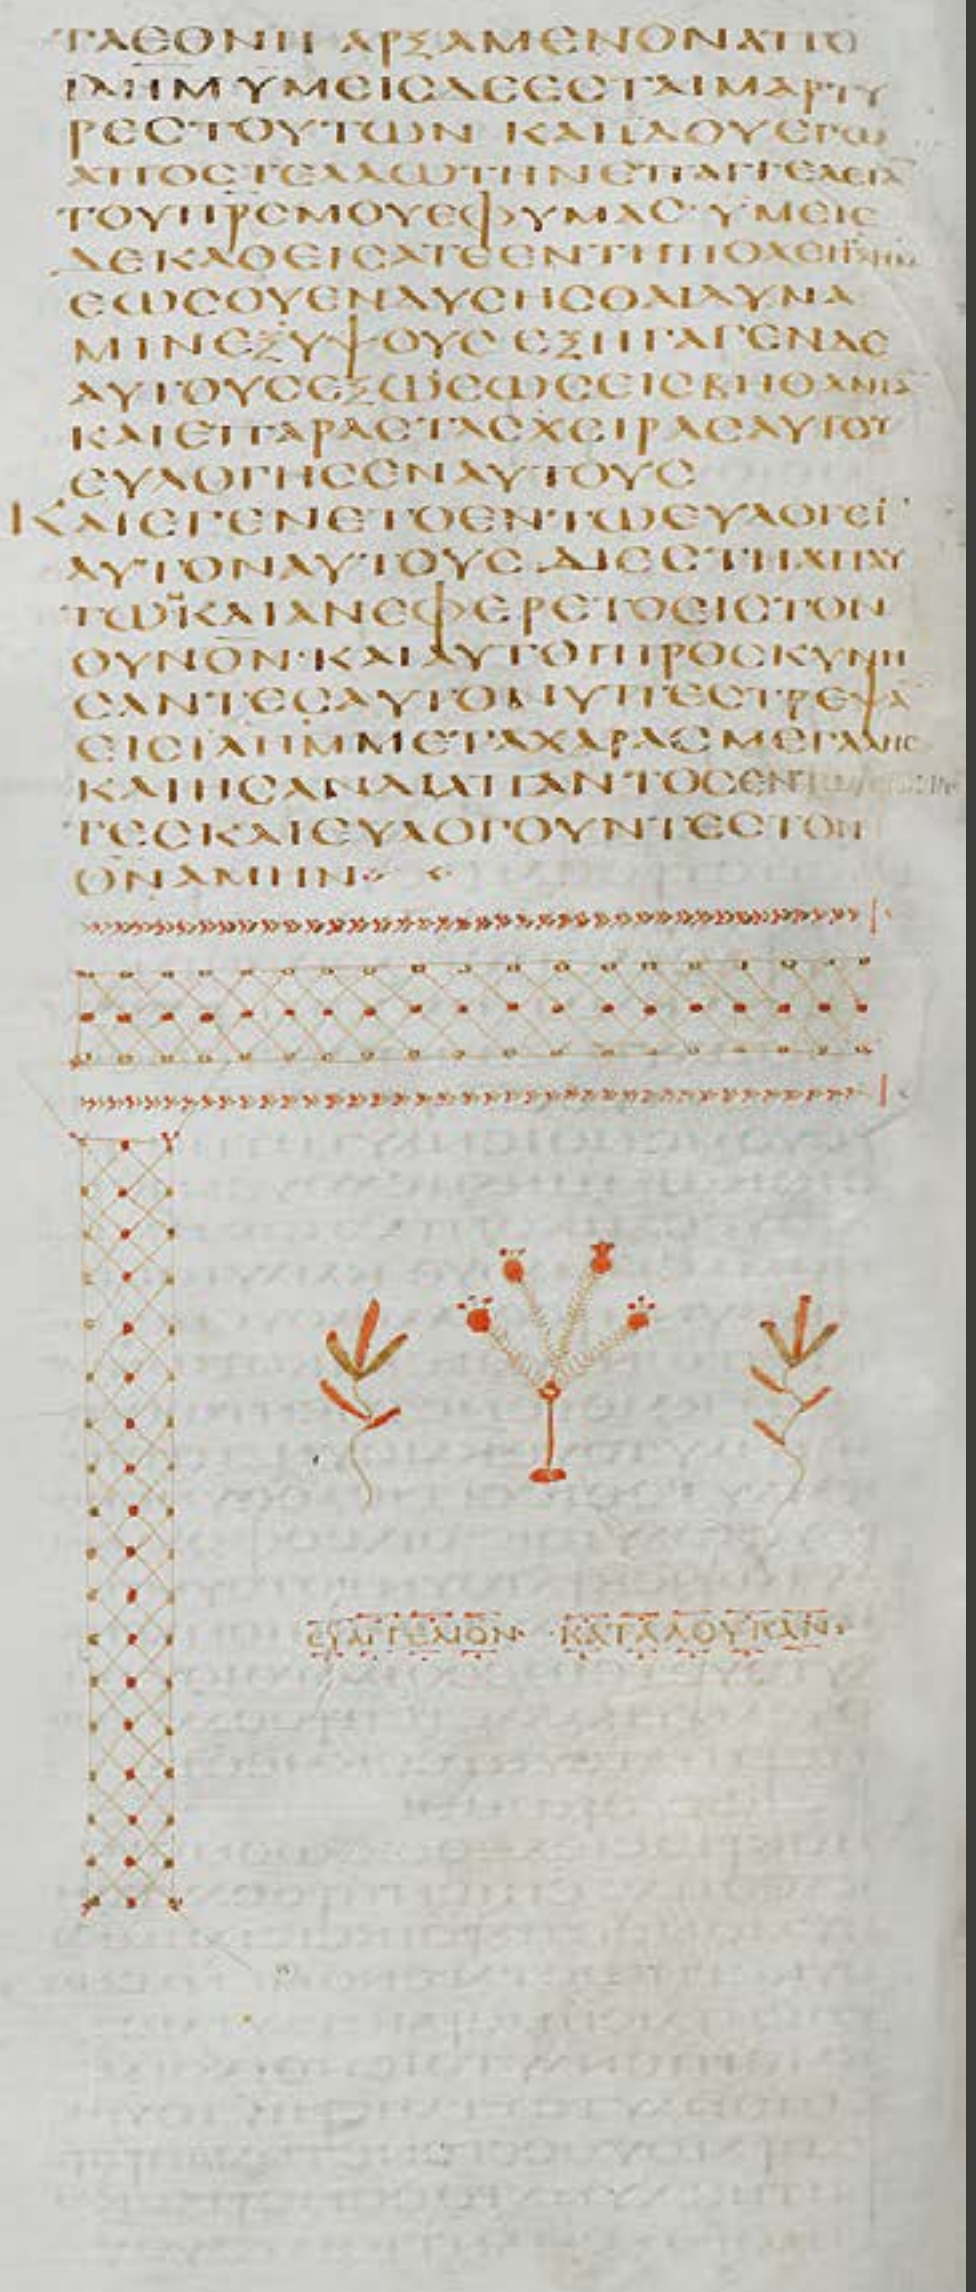 ΤΑΕΘΝΗ ΑΡΞΑΜΕΝΟΝΑΠΟ
ΙΛΗΜ ΥΜΕΙCΔΕΕCΤΑΙΜΑΡΤΥ
ΡΕCΤΟΥΤΩΝ ΚΑΙΙΔΟΥΕΓΩ
ΑΠΟCΤΕΛΛΩΤΗΝΕΠΑΓΓΕΛΕΙΑ̅
ΤΟΥΠΡ̅CΜΟΥΕΦΥΜΑC· ΥΜΕΙC
ΔΕΚΑΘΕΙCΑΤΕΕΝΤΗΠΟΛΕΙΙΛΗΜ
ΕΩCΟΥΕΝΔΥCΗCΘΑΙΔΥΝΑ
ΜΙΝΕΞΥΨΟΥC ΕΞΗΓΑΓΕΝΔΕ
ΑΥΤΟΥCΕΞΩΕΩCΕΙCΒΗΘΑΝΙΑ̅
ΚΑΙΕΠΑΡΑCΤΑCΧΕΙΡΑCΑΥΤΟΥ
ΕΥΛΟΓΗCΕΝΑΥΤΟΥC
ΚΑΙΕΓΕΝΕΤΟΕΝΤΩΕΥΛΟΓΕΙ̅
ΑΥΤΟΝΑΥΤΟΥC ΔΙΕCΤΗΑΠΑΥ
ΤΩ̅ΚΑΙΑΝΕΦΕΡΕΤΟΕΙCΤΟΝ
ΟΥΝΟ̅Ν· ΚΑΙΑΥΤΟΙΠΡΟCΚΥΝΗ
CΑΝΤΕCΑΥΤΟΝΥΠΕCΤΡΕΨΑ̅
ΕΙCΙΛΗΜΜΕΤΑΧΑΡΑCΜΕΓΑΛΗC
ΚΑΙΗCΑΝΔΙΑΠΑΝΤΟCΕΝ
ΤΕC ΚΑΙΕΥΛΟΓΟΥΝΤΕCΤΟΝ
Θ̅Ν̅ΑΜΗΝ
ΕΥΑΓΓΕΛΙΟΝ· ·ΚΑΤΑΛΟΥΚΑΝ·